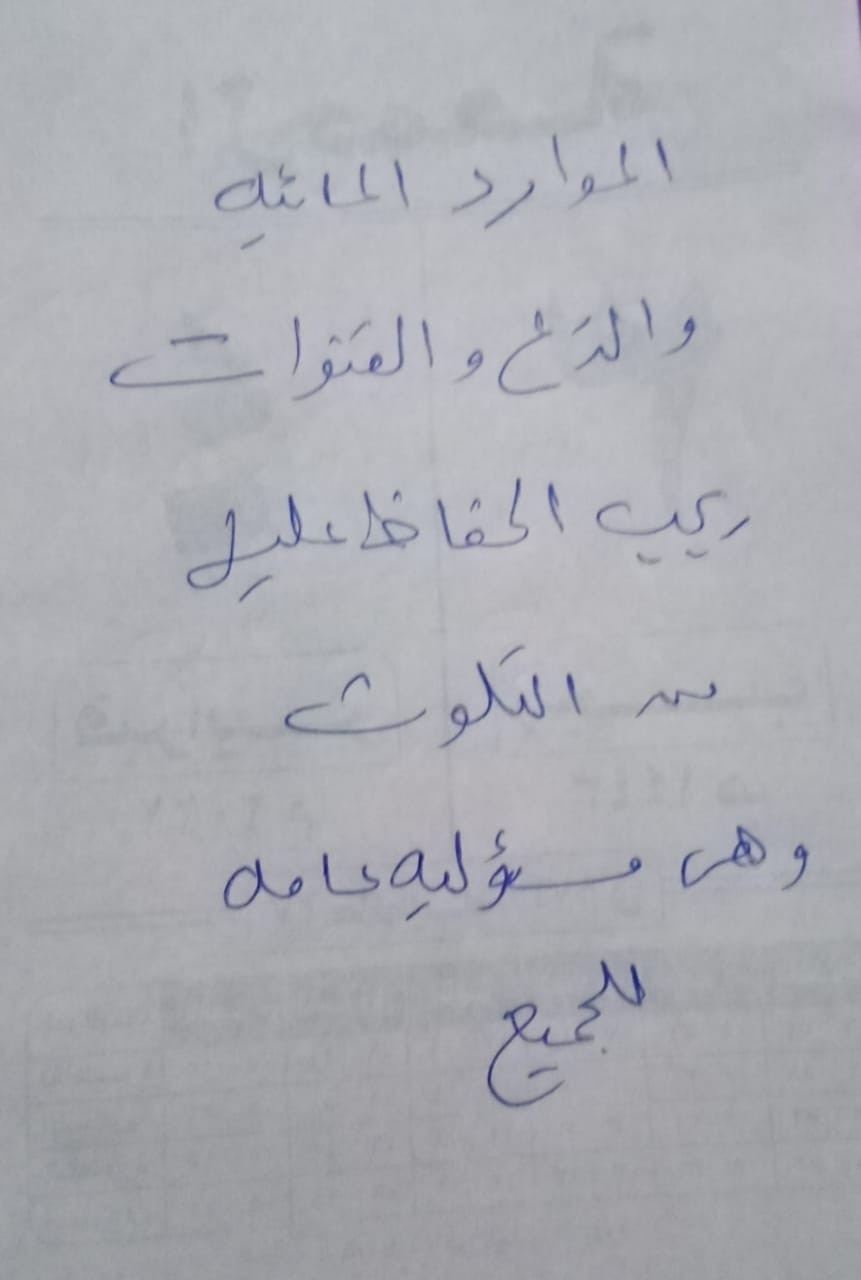 الموارد المائيه
والترع والقنوات
يجب الحفاظ عليها
من التلوث
وهى مسؤليه عامه
للجميع